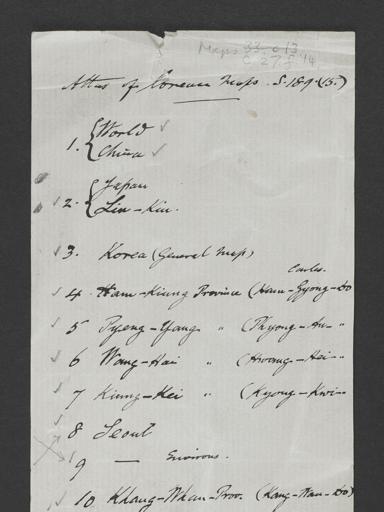 Maps 33. c 13.
C. 27. f. 14.
Atlas of Corean Maps. S. 189. (5.)
1. { World
China
2. { Japan
Liu-Kiu.
3. Korea (General Map)
4 Ham-Kiung Province (Ham-Gyong-do
5 Pyeng-Yang " (Phyong-An- "
6 Wang-Hai " (Hwang-Hei- "
7 Kiung-Kei " (Kyong-Kwi-
8 Seoul
9 — Environs.
10 Khang-Whan-Prov. (Kang-Uen-do)